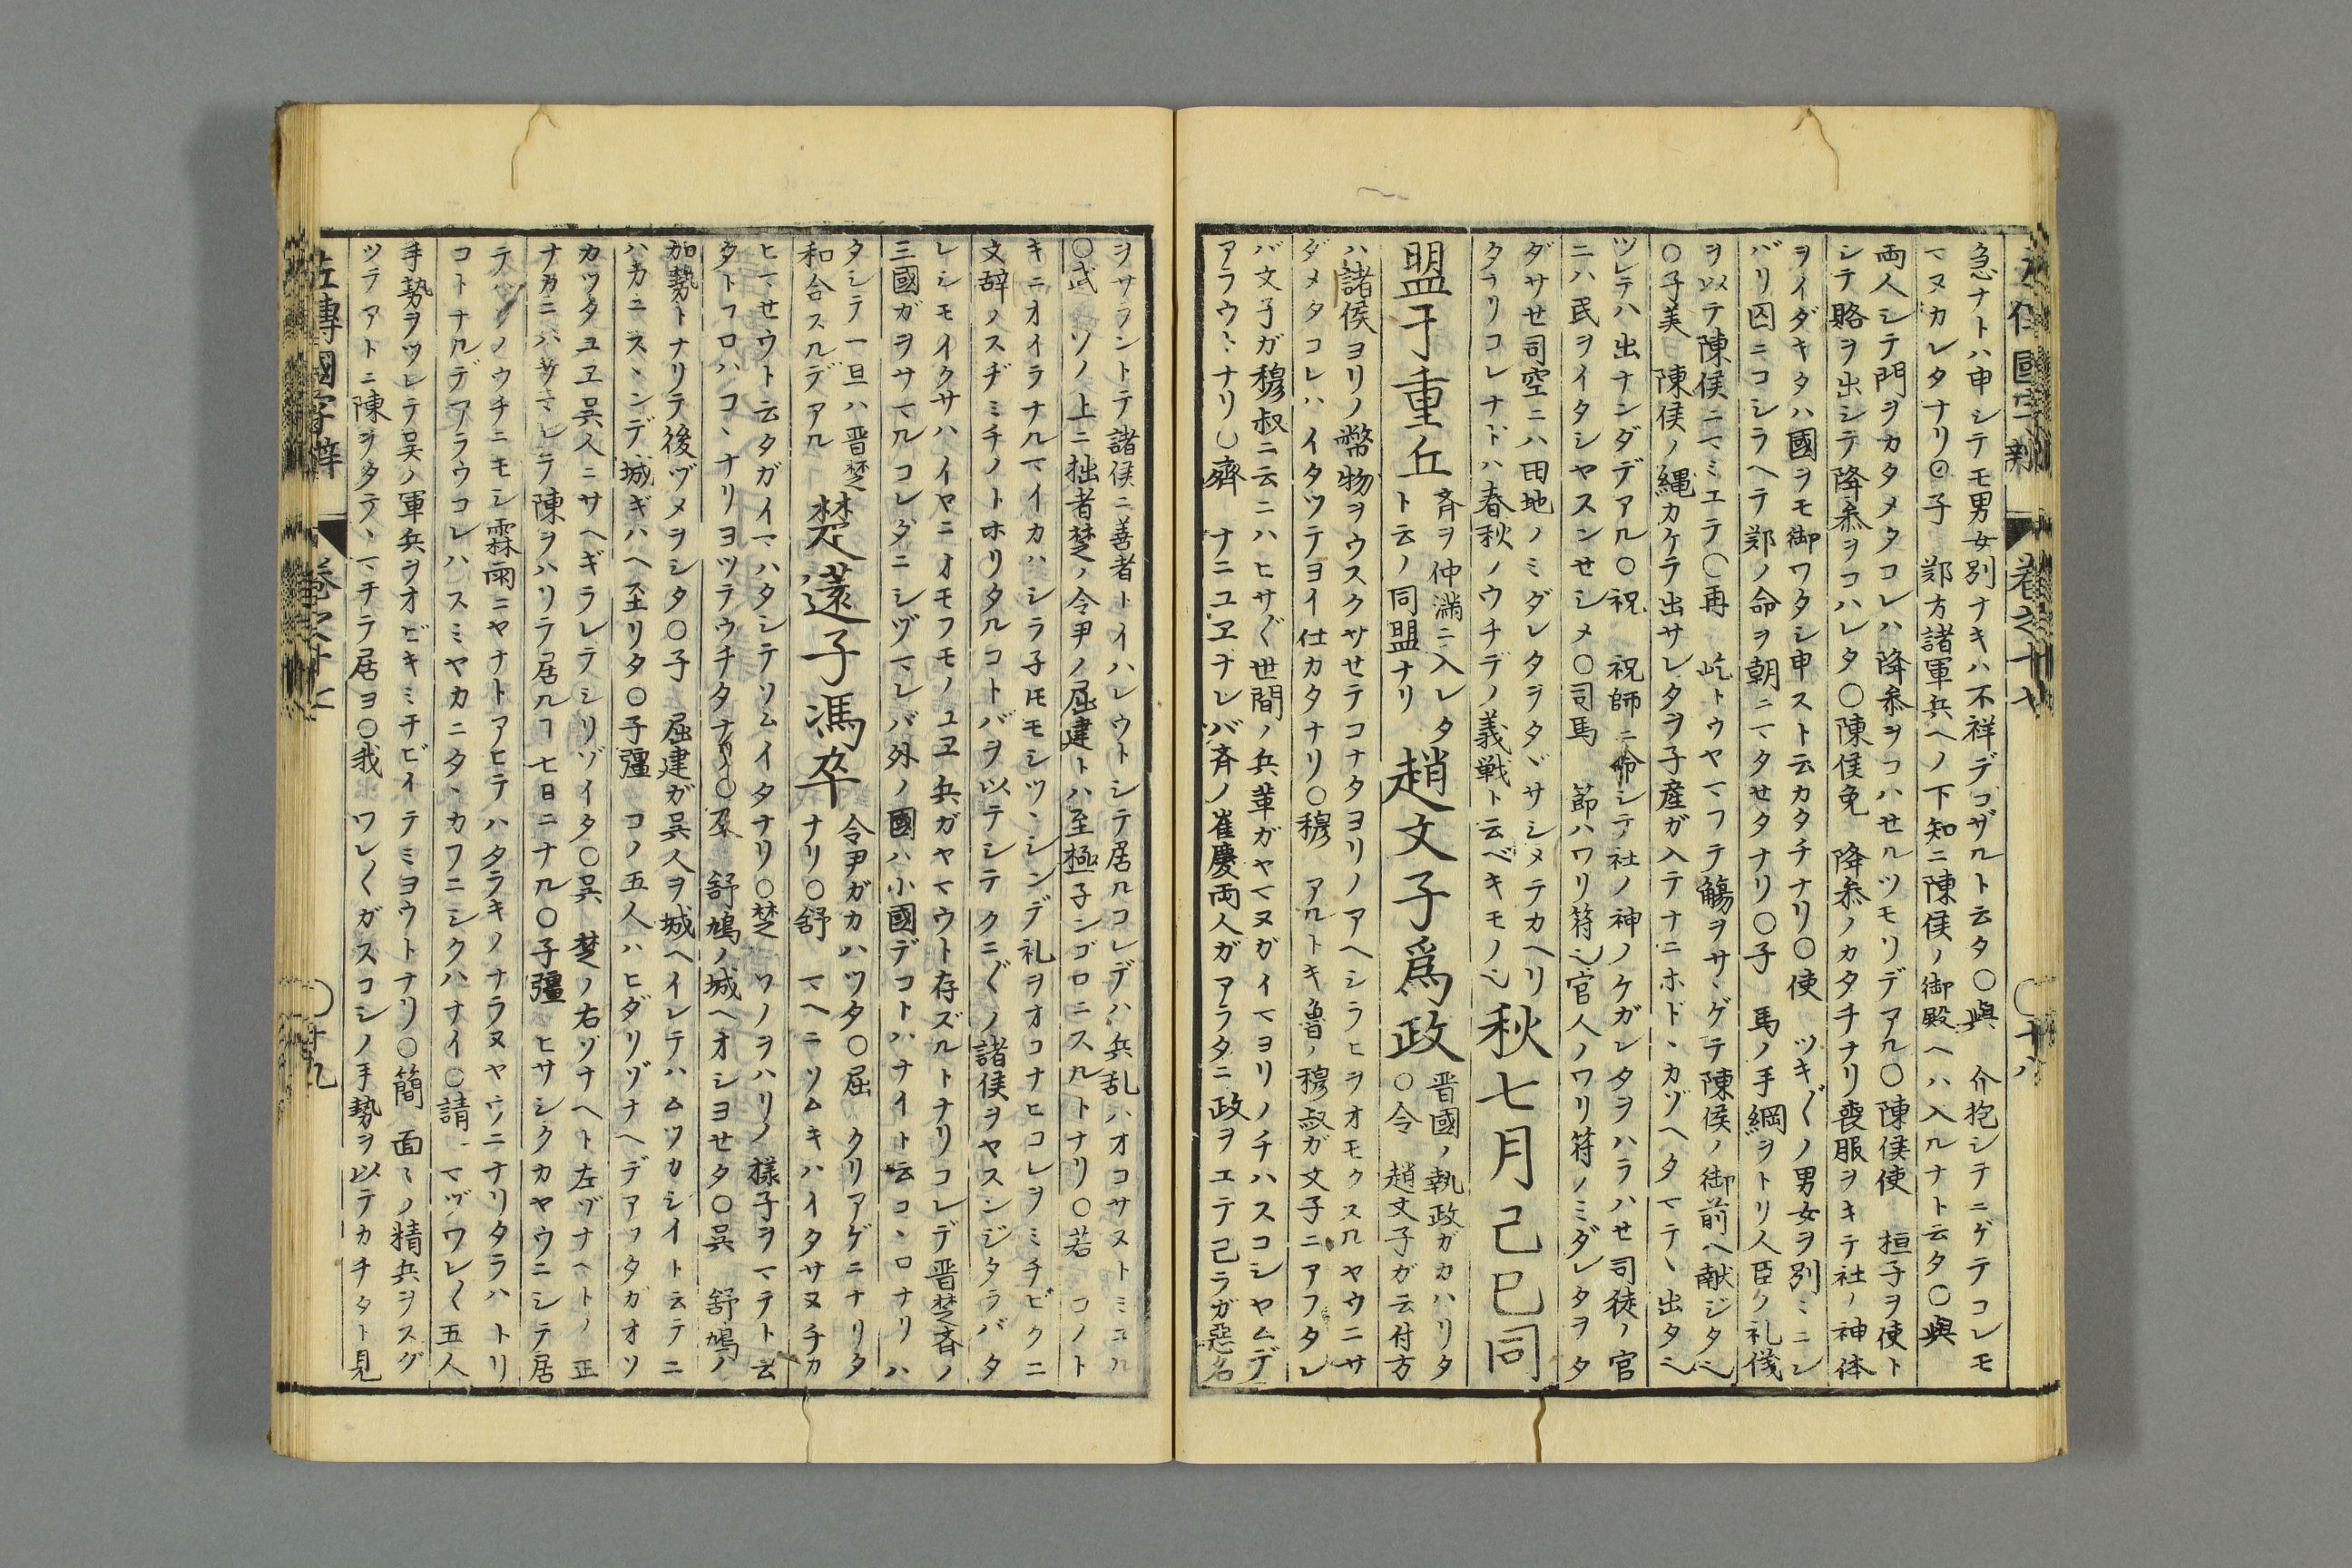 急ナトハ申シテモ男女別ナキハ不祥デゴザルト云タ〇與 介抱シテニゲテコレモ
マヌカレタナリ〇子 鄭方諸軍兵ヘノ下知ニ陳侯ノ御殿ヘハ入ルナト云タ〇與
両人シテ門ヲカタメタコレハ降参ヲコハセルツモリデアル〇陳侯使 桓子ヲ使ト
シテ賂ヲ出シテ降参ヲコハレタ〇陳侯免 降参ノカタチナリ喪服ヲキテ社ノ神体
ヲイダキタハ國ヲモ御ワタシ申スト云カタチナリ〇使 ツキ〴〵ノ男女ヲ別ミニシ
バリ囚ニコシラヘテ鄭ノ命ヲ朝ニマタセタナリ〇子 馬ノ手綱ヲトリ人臣ノ礼儀
ヲ以テ陳侯ニマミエテ〇再 屹トウヤマフテ觴ヲサヽゲテ陳侯ノ御前ヘ献ジタ也
〇子美 陳侯ノ縄カケテ出サレタヲ子産ガ入テナニホドヽカゾヘタマテヽ出タ也
ツレテハ出ナンダデアル〇祝 祝師ニ命シテ社ノ神ノケガレタヲハラハセ司徒ノ官
ニハ民ヲイタシヤスンセシメ〇司馬 節ハワリ符也官人ノワリ符ノミダレタヲタ
ダサセ司空ニハ田地ノミダレタヲタヾサシメテカヘリ
タフリコレナドハ春秋ノウチデノ義戦ト云ベキモノ也 秋七月己巳同
盟于重丘 斉ヲ仲満ニ入レタ
ト云ノ同盟ナリ 趙文子爲政 晋國ノ執政ガカハリタ
〇令 趙文子ガ云付方
ハ諸侯ヨリノ幣物ヲウスクサセテコナタヨリノアヘシラヒヲオモクスルヤウニサ
ダメタコレハイタツテヨイ仕カタナリ〇穆 アルトキ魯ノ穆叔ガ文子ニアフタレ
バ文子ガ穆叔ニ云ニハヒサグ世間ノ兵輩ガヤマヌガイマヨリノチハスコシヤムデ
アラウヽナリ〇齊 ナニユヱナレバ斉ノ崔慶両人ガアラタニ政ヲエテ己ラガ惡名
ヲサラントテ諸侯ニ善者トイハレウトシテ居ルコレデハ兵乱ハオコサヌトミユル
〇武 ソノ上ニ拙者楚ノ令尹ノ屈建トハ至極子ンゴロニスルトナリ〇若 コノト
キニオイラナルマイカハシラ子𪜈モシツヽシンデ礼ヲオコナヒコレヲミチビクニ
文辞ノスヂミチノトホリタルコトバヲ以テシテクニ〴〵ノ諸侯ヲヤスンジタラバタ
レシモイクサハイヤニオモフモノユヱ兵ガヤマウト存ズルトナリコレデ晋楚斉ノ
三國ガヲサマルコレダニシヅマレバ外ノ國ハ小國デコトハナイト云コヽロナリハ
タシテ一旦ハ晋楚
和合スルデアル 楚薳子馮卒 令尹ガカハツタ〇屈 クリアゲニナリタ
ナリ〇舒 マヘニソムキハイタサヌチカ
ヒマセウト云タガイマハタシテソムイタナリ〇楚 ワノヲハリノ様子ヲマテト云
タトコロハコヽナリヨツテウチタナリ〇及 舒鳩ノ城ヘオシヨセタ〇呉 舒鳩ノ
加勢トナリテ後ヅメヲシタ〇子 屈建ガ呉人ヲ城ヘイレテハムツカシイト云テニ
ハカニスヽンデ城ギハヘ至リタ〇子彊 コノ五人ハヒダリゾナヘデアツタガオソ
カツタユヱ呉人ニサヘギラレテシリゾイタ〇呉 楚ノ右ゾナヘト左ヅナヘトノ正
ナカニハサマレテ陳ヲハリテ居ルヿ七日ニナル〇子彊 ヒサシクカヤウニシテ居
テハソノウチニモシ霖雨ニヤナトアヒテハタラキノナラヌヤウニナリタラハトリ
コトナルデアラウコレハスミヤカニタヽカフニシクハナイ〇請 マヅワレ〳〵五人
手勢ヲツレテ呉ノ軍兵ヲオビキミチビイテミヨウトナリ〇簡 面ミノ精兵ヲスグ
ツテアトニ陳ヲタテヽマチテ居ヨ〇我 ワレ〳〵ガスコシノ手勢ヲ以テカチタト見
左傳國字辯 巻之十七 〇十九